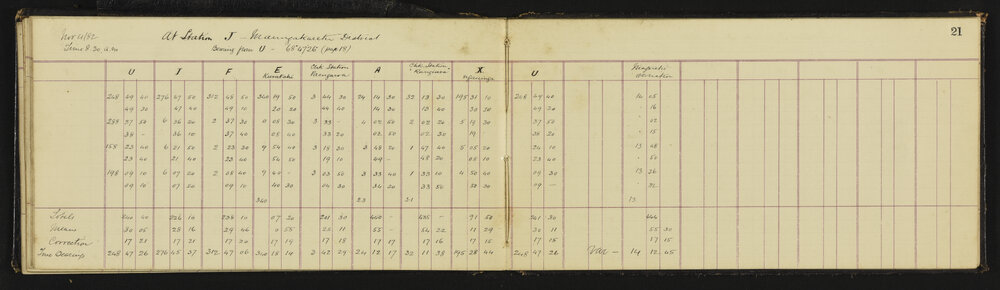 21
Nov 11/82 At Station J - Maungakaretu District
Time 8.30 a.m Bearing from U - 68 47 26 (page 18)
U I F E Chk Station A Chk Station X U Magnetic
248 49 40 276 47 50 312 48 50 340 19 50 3 44 30 24 14 30 32 13 30 195 31 10 248 49 40 14 05
49 30 47 40 49 10 20 20 44 40 14 30 13 40 30 50 49 20 16
288 37 50 6 36 20 2 37 30 0 08 30 3 33 - 4 02 50 2 02 20 5 19 30 37 50 02
38 - 36 10 37 40 08 40 33 20 02 50 02 30 19 - 38 20 15
158 23 40 6 21 50 2 23 30 9 54 40 3 18 30 3 48 20 1 47 40 5 05 20 24 10 13 48
23 40 21 40 23 40 54 50 19 10 49 - 48 20 05 10 23 40 50
198 09 10 6 07 20 2 08 40 9 40 - 3 03 50 3 33 40 1 33 10 4 50 40 09 30 13 26
09 10 07 50 09 10 40 30 04 30 34 20 33 50 50 30 09 - 32
340 23 31 13
Totals 240 40 226 10 238 10 07 20 201 30 440 - 435 - 91 50 241 30 444
Means 30 05 28 16 29 46 0 55 25 11 55 - 54 22 11 29 30 11 55 30
Correction 17 21 17 21 17 20 17 19 17 18 17 17 17 16 17 15 17 15 17 15
True Bearing 248 47 26 276 45 37 312 47 06 340 18 14 2 42 29 24 12 17 32 11 38 195 28 44 248 47 26 Var - 14 12 45